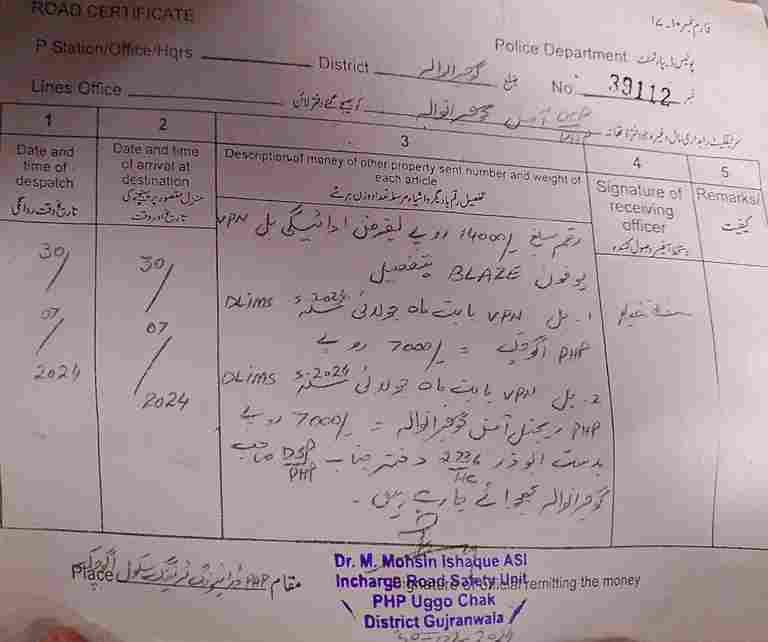 ROAD CERTIFICATE
فارم نمبر ۱۰۔۱۷
P Station/Office/Hqrs
District گوجرانوالہ ضلع
Police Department پولیس ڈیپارٹمنٹ
No. 39112 نمبر
Lines Office
PHP آفس گوجرانوالہ
1
2
3
4
5
Date and time of despatch
تاریخ و وقت روانگی
Date and time of arrival at destination
منزل مقصود پر پہنچنے کی تاریخ اور وقت
Description of money of other property sent number and weight of each article
Signature of receiving officer
Remarks/
کیفیت
30/07/2024
30/07/2024
رقم مبلغ 14000/- روپے بغرض ادائیگی بل VPN
یوفون BLAZE بتفصیل
1۔ بل VPN بابت ماہ جولائی 2024 DLIMS
PHP اگوچک = 7000/- روپے
2۔ بل VPN بابت ماہ جولائی 2024 DLIMS
PHP ریجنل آفس گوجرانوالہ = 7000/- روپے
بدست ابوذر 2236/HC دفتر جناب DSP/PHP صاحب
گوجرانوالہ بھجوائے جا رہے ہیں۔
Place مقام PHP ڈرائیونگ ٹریننگ سکول اگوچک
Signature of official remitting the money
Dr. M. Mohsin Ishaque ASI
Incharge Road Safety Unit
PHP Uggo Chak
District Gujranwala